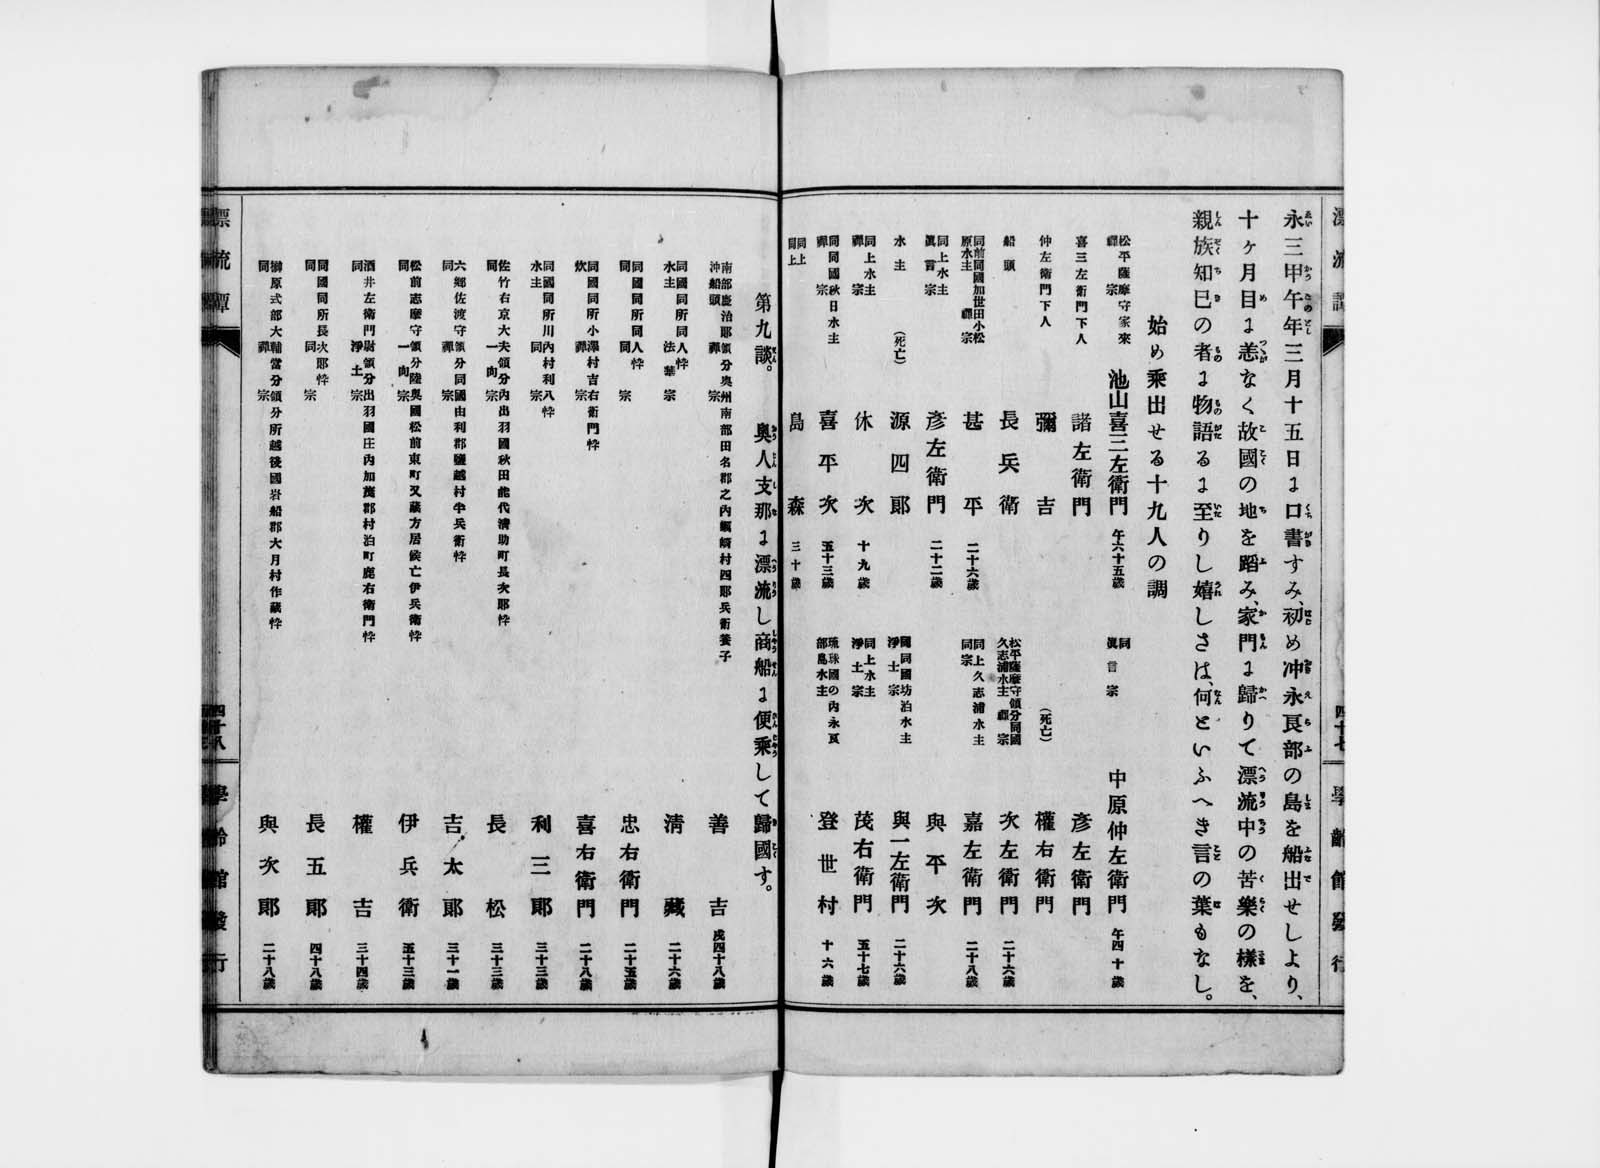 漂流譚
四十七
學齡館發行
永三甲午年三月十五日に口書すみ、初め冲永良部の島を船出せしより、
十ヶ月目に恙なく故國の地を蹈み、家門に歸りて漂流中の苦樂の樣を、
親族知己の者に物語るに至りし嬉しさは、何といふへき言の葉もなし。
始め乘出せる十九人の調
松平薩摩守家來 禪宗 池山喜三左衛門 午六十五歳
同 眞言宗 中原仲左衛門 午四十歳
喜三左衛門下人 諸左衛門
彥左衛門
仲左衛門下人 彌吉
(死亡) 權右衛門
船頭 長兵衛
松平薩摩守領分同國久志浦水主 禪宗 次左衛門 二十六歳
同前同國加世田小松原水主 禪宗 甚平 二十六歳
同上久志浦水主 同宗 嘉左衛門 二十八歳
同上水主 眞言宗 彥左衛門 二十二歳
與平次
水主 (死亡) 源四郎
同國坊泊水主 淨土宗 與一左衛門 二十六歳
同上水主 禪宗 休次 十九歳
同上水主 淨土宗 茂右衛門 五十七歳
同同國秋日水主 禪宗 喜平次 五十三歳
琉球國の內永良部島水主 登世村 十六歳
同上 同上 島森 三十歳
第九談。 奧人支那に漂流し商船に便乘して歸國す。
南部慶治郎領分奧州南部田名郡之內 村四郎兵衛養子 沖船頭 禪宗 善吉 戌四十八歳
同國同所同人忰 水主 法華宗 淸藏 二十六歳
同國同所同人忰 同 同宗 忠右衛門 二十五歳
同國同所小澤村吉右衛門忰 炊 禪宗 喜右衛門 二十八歳
同國同所川內村利八忰 水主 同 同宗 利三郎 三十三歳
佐竹右京大夫領分內出羽國秋田能代淸助町長次郎忰 同 一向宗 長松 三十三歳
六鄕佐渡守領分同國由利郡鹽越村半兵衛忰 同 禪宗 吉太郎 三十一歳
松前志摩守領分陸奧國松前東町又藏方居候亡伊兵衛忰 同 一向宗 伊兵衛 五十三歳
酒井左衛門尉領分出羽國庄內加茂郡村泊町鹿右衛門忰 同 淨土宗 權吉 三十四歳
同國同所長次郎忰 同 同宗 長五郎 四十八歳
榊原式部大輔當分領分所越後國岩船郡大月村作藏忰 同 禪宗 與次郎 二十八歳
漂流譚
四十八
學齡館發行